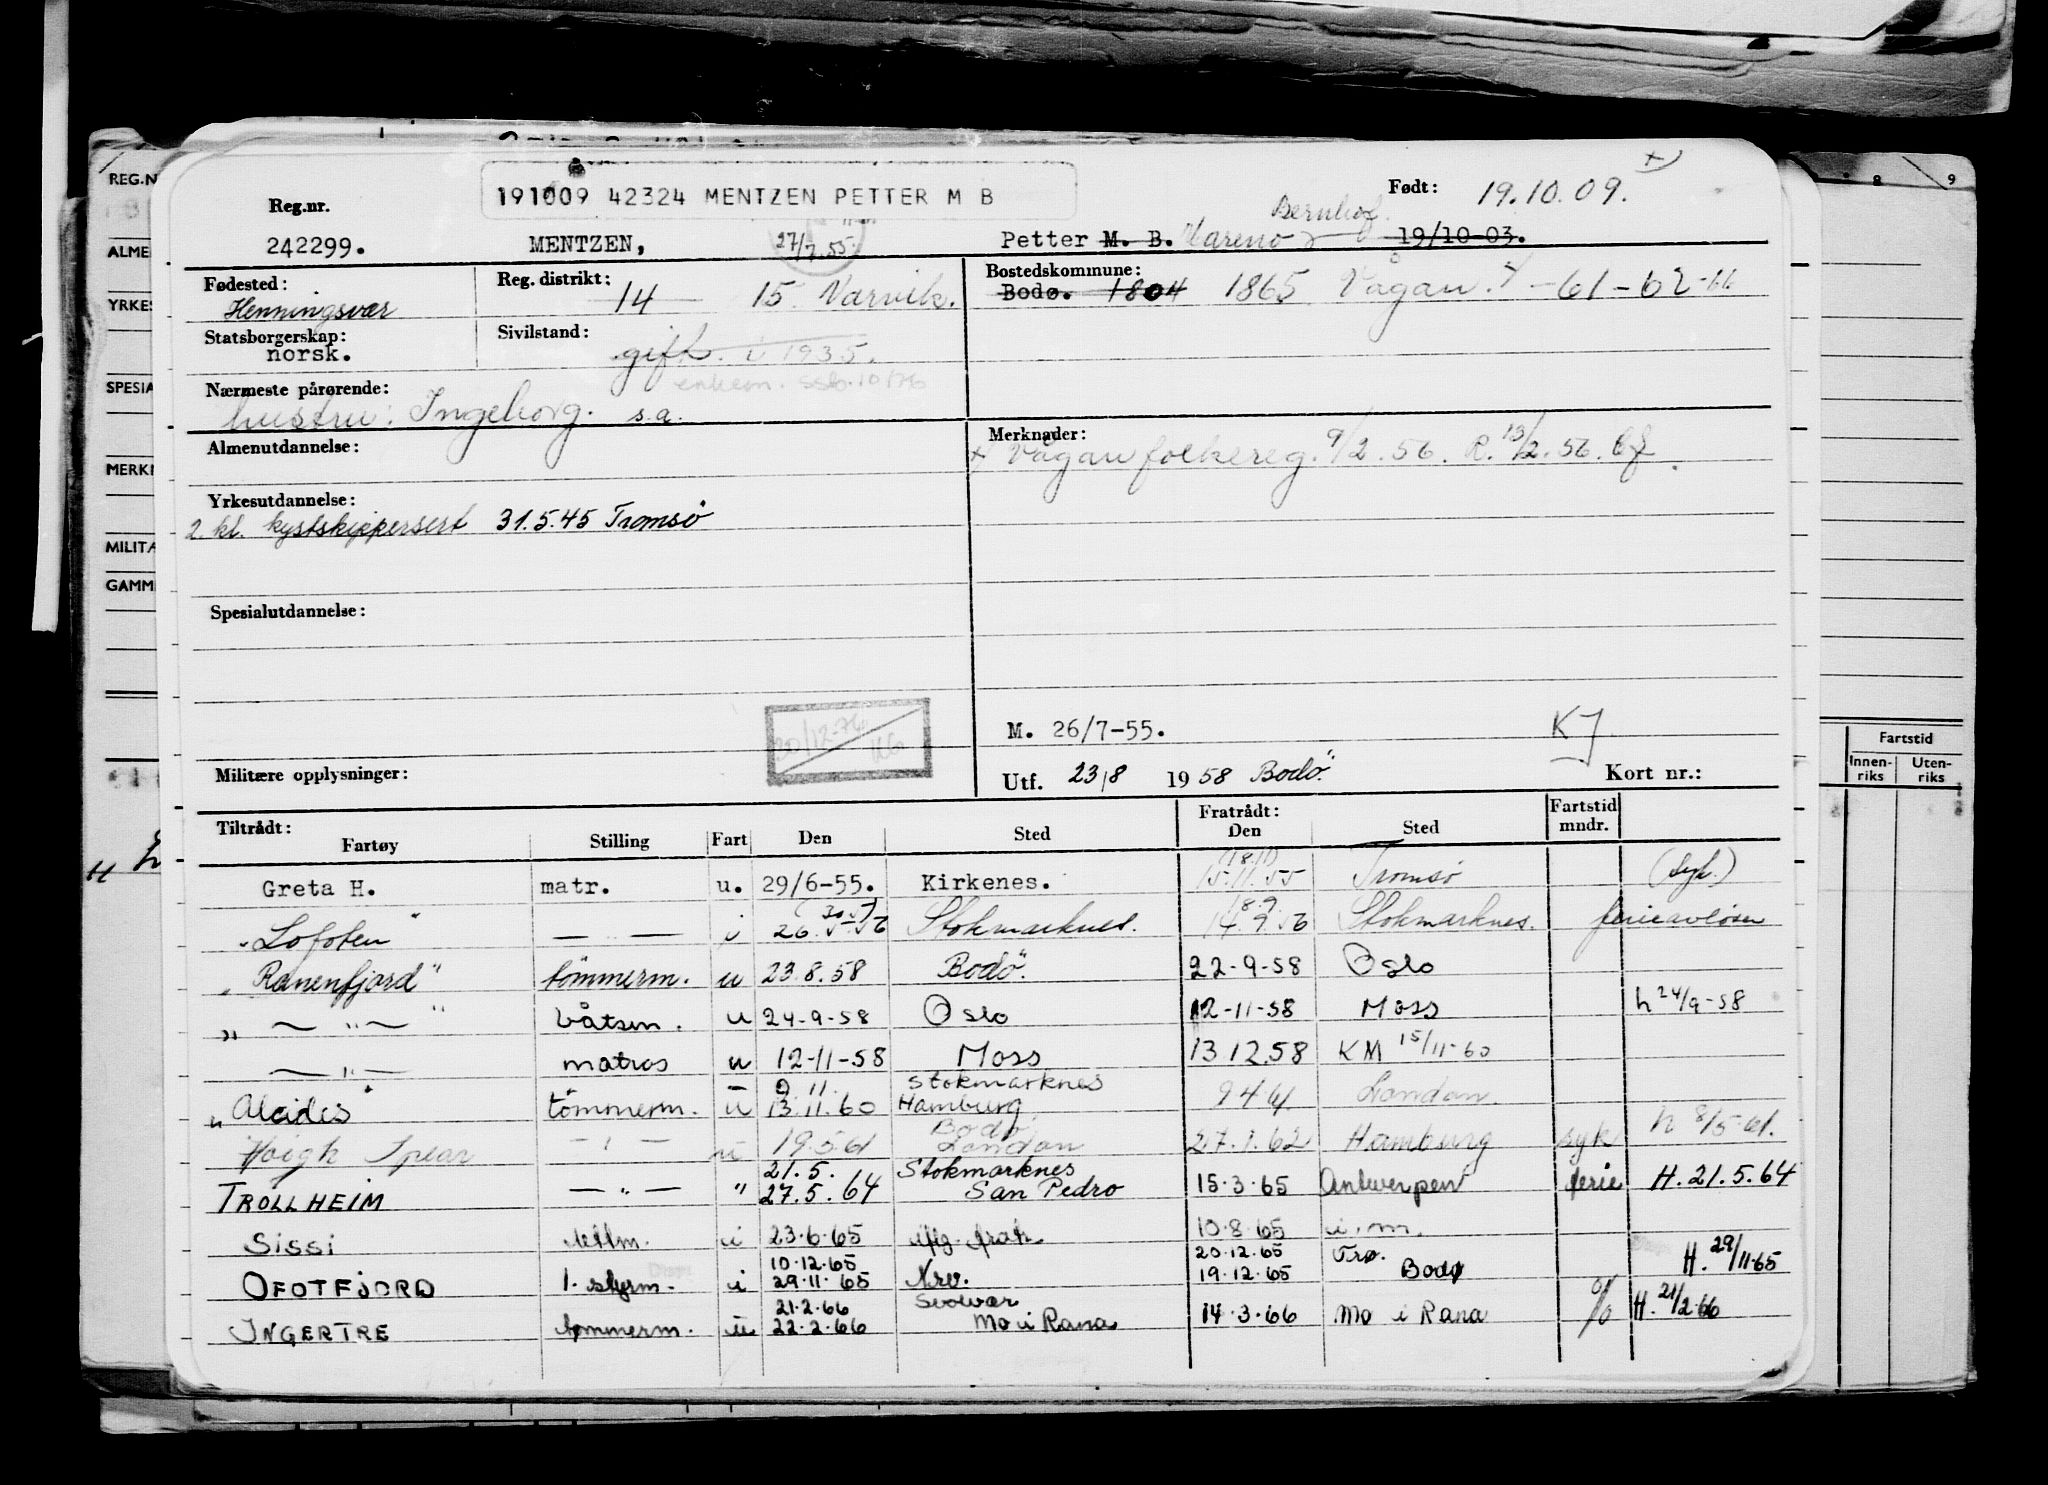 Født: 19.10.09.
191009 42324 MENTZEN PETTER M B
Reg.nr.
242299. MENTZEN, 27/7.55. Petter M. B. 19/10-03.
Fødested: Henningsvær
Reg. distrikt: 14 15 Narvik.
Bostedskommune: Bodø. 1804 1865 Vågan. -61-62-66
Statsborgerskap: norsk.
Sivilstand: gift. i 1935.
Nærmeste pårørende:
hustru: Ingeborg. s.a.
Almenutdannelse:
Merknader:
x Vågan folkereg. 9/2.56. R. 13/2.56.
Yrkesutdannelse:
2. kl. kystskippersert 31.5.45 Tromsö
Spesialutdannelse:
M. 26/7-55. KJ
20/12-76
Militære opplysninger:
Utf. 23/8 1958 Bodö. Kort nr.:
Tiltrådt: Fratrådt: Fartstid
Fartøy Stilling Fart Den Sted Den Sted mndr.
(18.11)
Greta H. matr. u. 29/6-55. Kirkenes. 15.11.55 Tromsø (syk.)
"Lofoten" — " — i 26.5.56 Stokmarknes. 18.9. 14.9.56 Stokmarknes. ferieavløser
"Ranenfjord" tömmerm. u 23.8.58 Bodö. 22-9-58 Oslo
" — " — " båtsm. u 24-9-58 Oslo 12-11-58 Moss h 24/9-58
— " — matros u 12-11-58 Moss 13.12.58 KM 15/11-60
9.11. Stokmarknes
"Alcides" tömmerm. u 13.11.60 Hamburg 9 4 61. London.
Bodø
Høigh Spear — " — u 19.5.61 London 27.1.62 Hamburg syk h 8/5-61.
21.5. Stokmarknes
TROLLHEIM — " — " 27.5.64 San Pedro 15.3.65 Antwerpen ferie H. 21.5.64
SISSI i 23.6.65 10.8.65 i.m.
10.12.65 20.12.65 Trø.
OFOTFJORD 1. styrm. i 29.11.65 Nrv. 19.12.65 Bodø H. 29/11.65
21.2.66 Svolvær
INGERTRE tømmerm. u 22.2.66 Mo i Rana 14.3.66 Mo i Rana % H. 21/2.66
REG.N
ALME
YRKES
SPESIA
MERK
MILITÆ
GAMM
8 9
Fartstid
Innenriks Utenriks